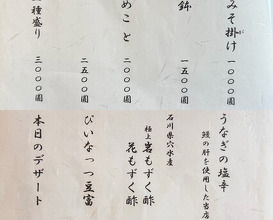 みそ掛け
一〇〇〇圓
一五〇〇圓
めこと
二〇〇〇圓
二五〇〇圓
種盛り
三〇〇〇圓
うなぎの塩辛
鰻の肝を使用した当店
石川県穴水産
極上 岩もずく酢
花もずく酢
ぴいなっつ豆富
本日のデザート